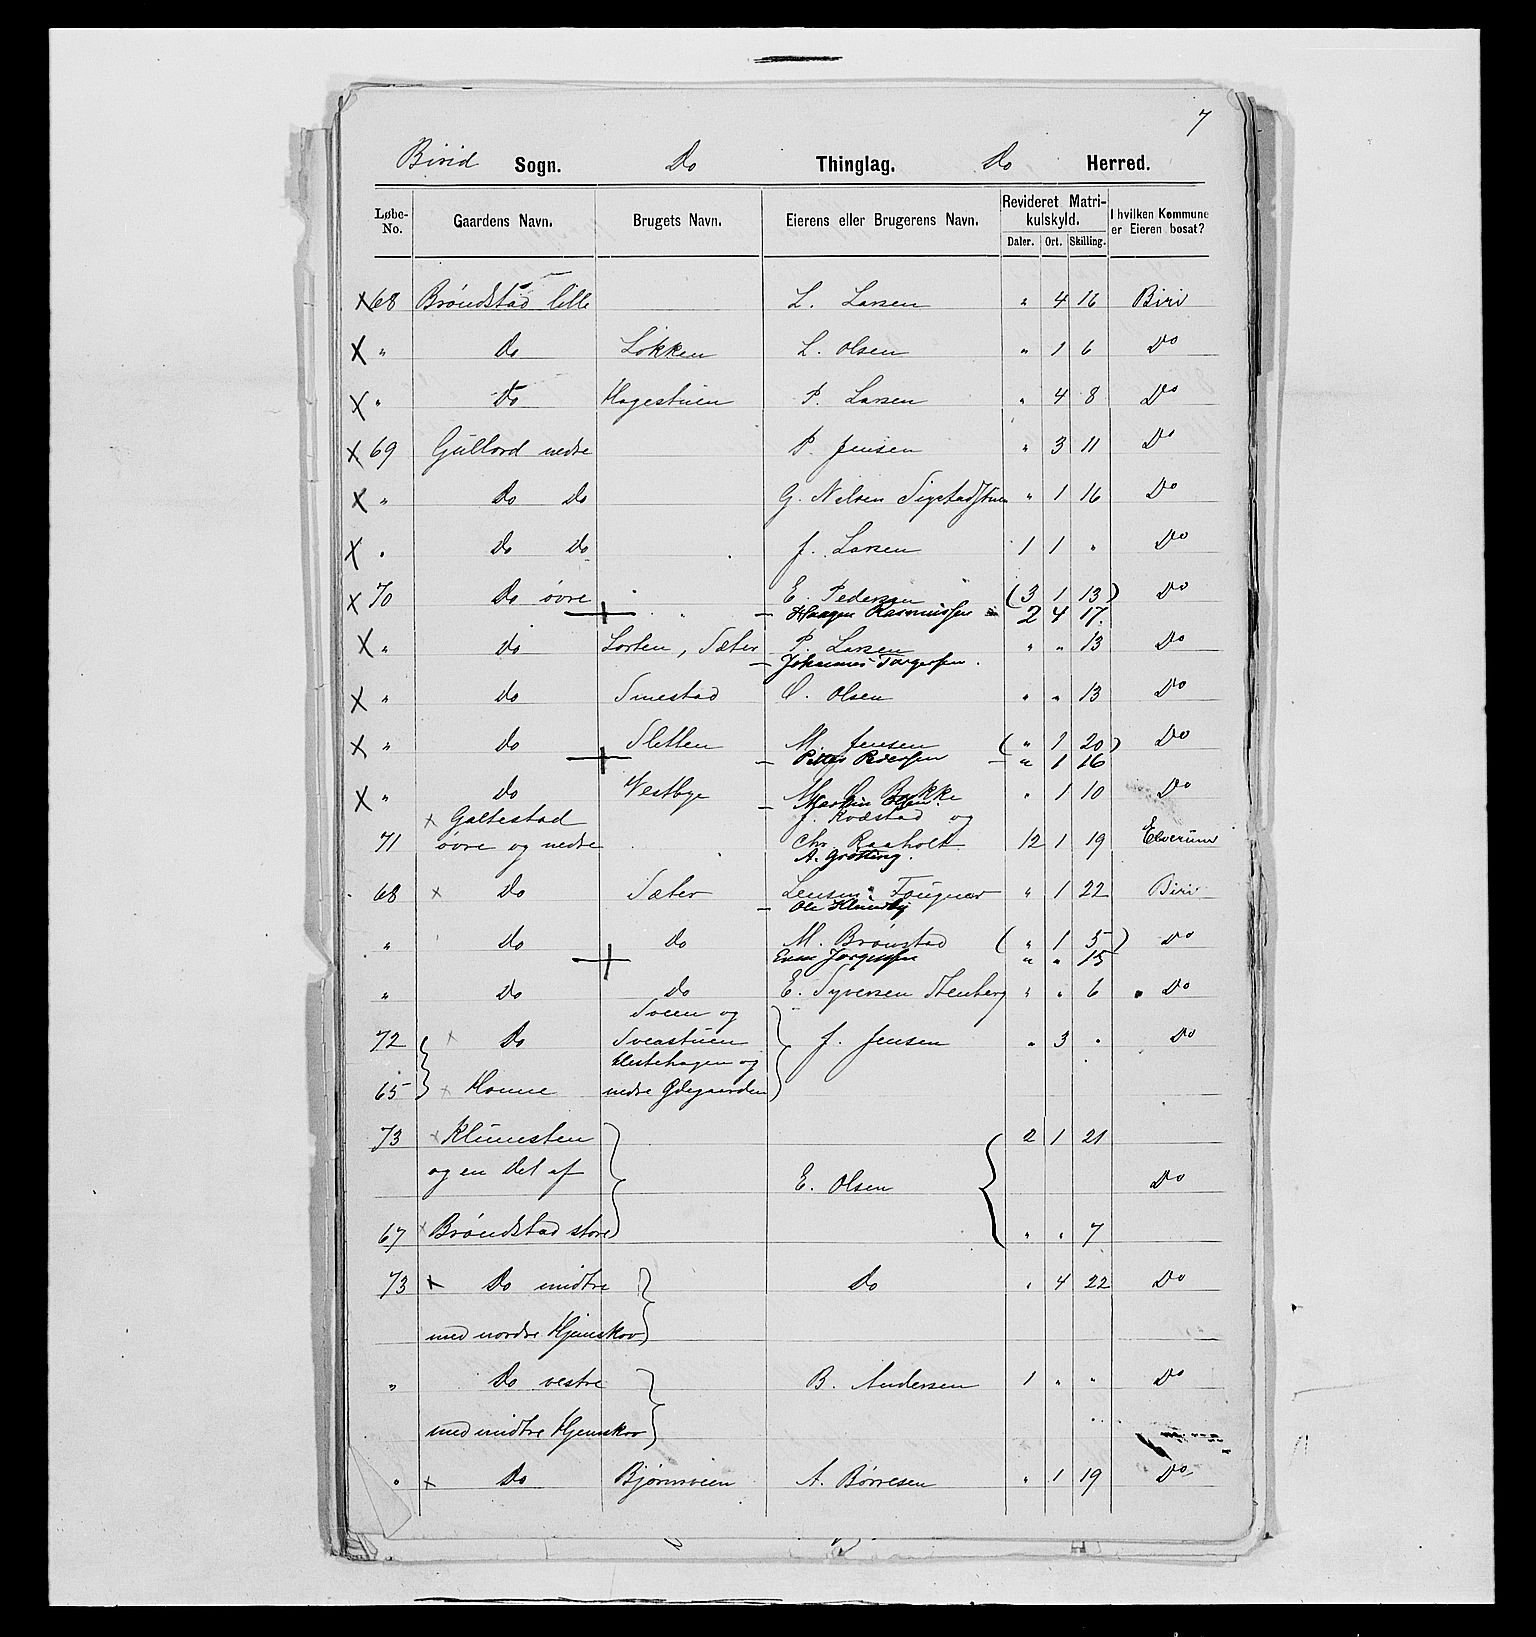 7
Birid Sogn. Do Thinglag. Do Herred.
Løbe-No. Gaardens Navn. Brugets Navn. Eierens eller Brugerens Navn. Revideret Matrikulskyld. I hvilken Kommune er Eieren bosat?
Daler. Ort. Skilling.
X 68 Brøndstad lille L. Larsen " 4 16 Biri
X " Do Løkken L. Olsen " 1 6 Do
X " Do Hagestuen P. Larsen " 4 8 Do
X 69 Gullord nedre P. Jensen " 3 11 Do
X " Do Do G. Nilsen Sigstadstuen " 1 16 Do
X " Do Do J. Larsen 1 1 " Do
X 70 Do øvre " E. Pedersen (3 1 13) Do
+ " – Haagen Rasmussen 2 4 17.
X " Do Lorten, Sæter P. Larsen " " 13 Do
– Johannes Torgersen.
X " Do Smestad O. Olsen " " 13 Do
X " Do Sletten M. Jensen (" 1 20) Do
+ – Petter Pedersen – " 1 16
X " Do Vestbye M. O. Bakke " 1 10 Do
– Martin Olsen.
x Galtestad J. Kvæstad og
71 øvre og nedre Chr. Raaholt 12 1 19 Elverum
A. Grøtting.
68 x Do Sæter Lensm. Fougner " 1 22 Biri
– Ole Klundby
" Do Do M. Brønstad (" 1 5) Do
+ Even Jørgensen " " 15
" Do Do E. Syversen Stenberg " " 6 Do
Sveen og
72 x Do Sveastuen J. Jensen " 3 " Do
Hestehagen og
65 x Honne nedre Ødegaarden
73 x Klunesten 2 1 21
og en Del af E. Olsen Do
67 x Brøndstad store " " 7
73 x Do midtre Do " 4 22 Do
med nordre Hjemskov
" Do vestre B. Andersen 1 " " Do
med midtre Hjemskov
" x Do Bjørnsveen A. Børresen " 1 19 Do